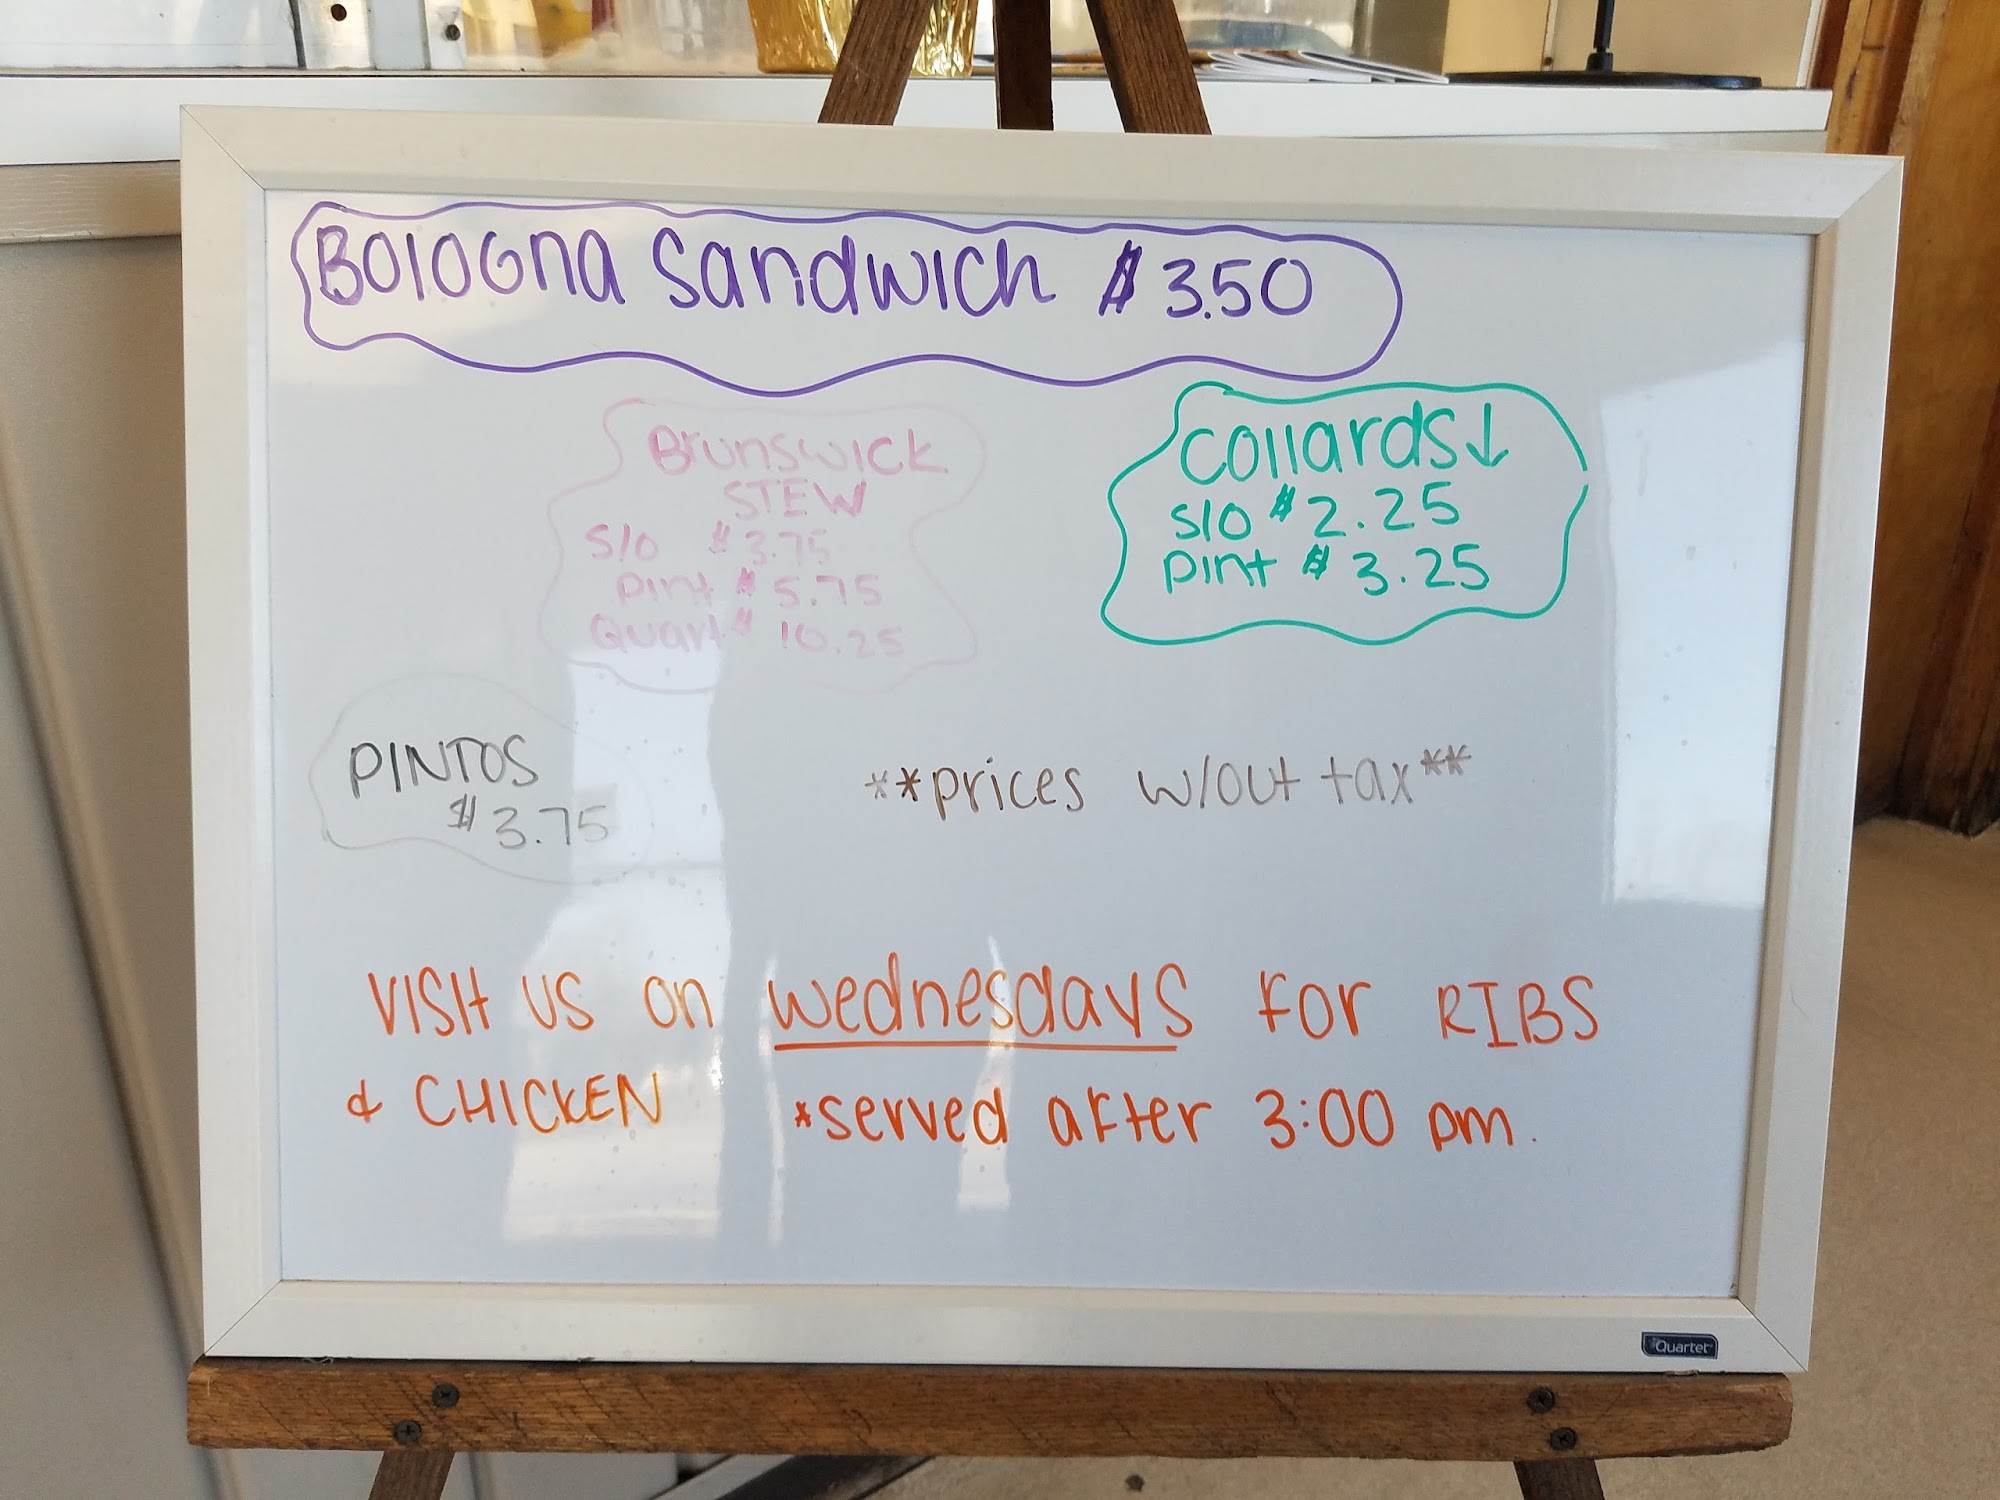 Bologna Sandwich $3.50
Brunswick
STEW
S/o $3.75
pint $5.75
Quart $10.25
Collards↓
S/o $2.25
pint $3.25
PINTOS
$3.75
**prices w/out tax**
VISIt US on Wednesdays For RIBS
& CHICKEN *served after 3:00 pm.
Quartet